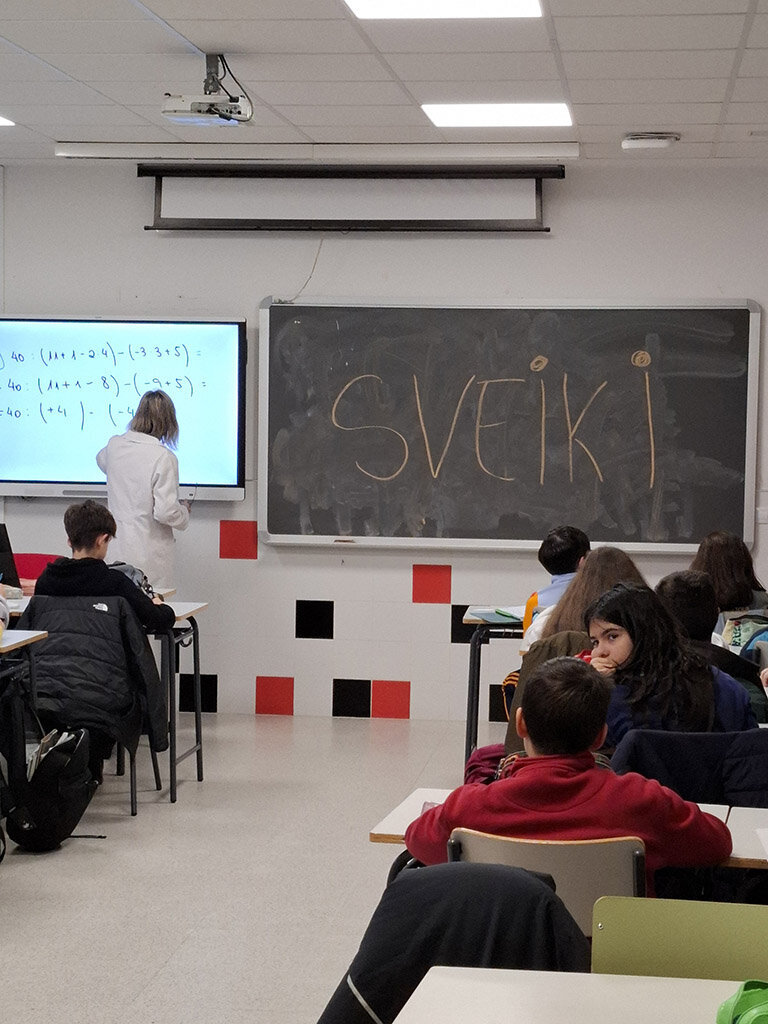 40 : (11+1-2·4) - (-3·3+5) =
40 : (11+1-8) - (-9+5) =
40 : (+4 ) - (-4
SVEIKI